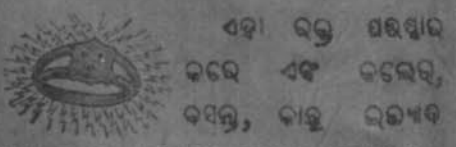 ଏହା ରକ୍ତ ପରଷ୍କାର
କରେ ଏବଂ କଲେରା,
ବସନ୍ତ, କାଛୁ ଇତ୍ୟାଦି